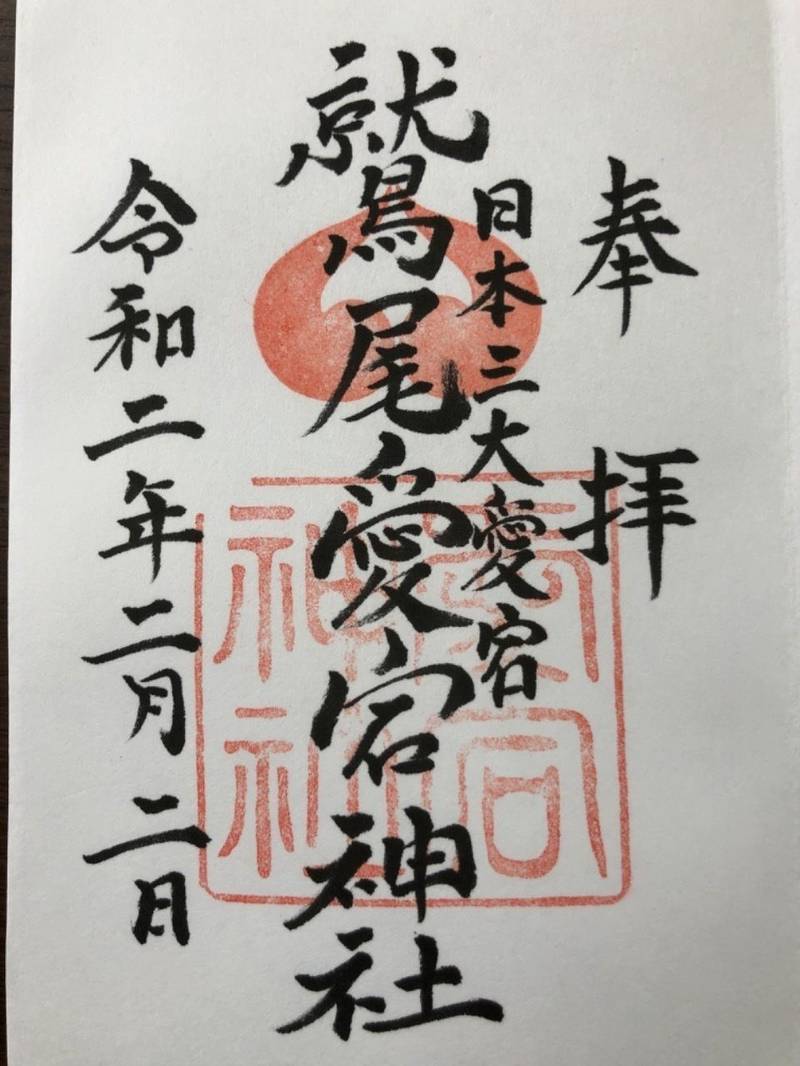 奉拝
日本三大愛宕
鷲尾愛宕神社
令和二年二月二日
愛宕
神社